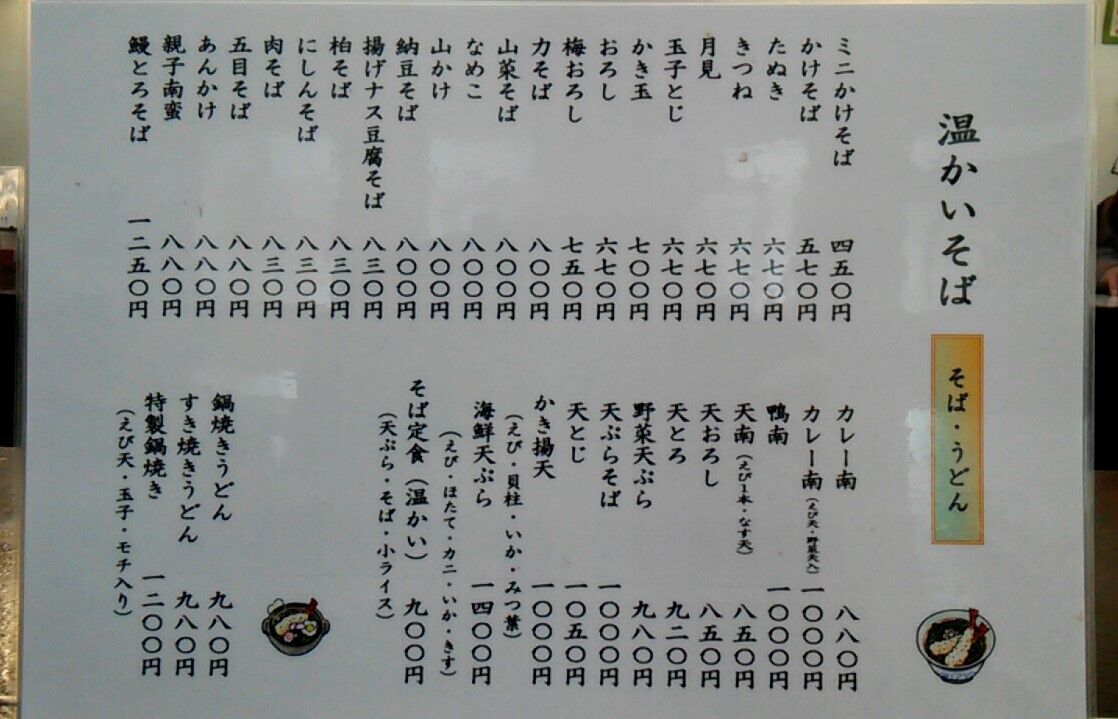 温かいそば
そば・うどん
ミニかけそば 四五〇円
かけそば 五七〇円
たぬき 六七〇円
きつね 六七〇円
月見 六七〇円
玉子とじ 六七〇円
かき玉 七〇〇円
おろし 六七〇円
梅おろし 七五〇円
力そば 八〇〇円
山菜そば 八〇〇円
なめこ 八〇〇円
山かけ 八〇〇円
納豆そば 八〇〇円
揚げナス豆腐そば 八三〇円
柏そば 八三〇円
にしんそば 八三〇円
肉そば 八三〇円
五目そば 八八〇円
あんかけ 八八〇円
親子南蛮 八八〇円
鰻とろそば 一二五〇円
カレー南 八八〇円
カレー南(えび天・野菜天入) 一〇〇〇円
鴨南 一〇〇〇円
天南(えび1本・なす天) 八五〇円
天おろし 八五〇円
天とろ 九二〇円
野菜天ぷら 九八〇円
天ぷらそば 一〇〇〇円
天とじ 一〇五〇円
かき揚天 一〇〇〇円
(えび・貝柱・いか・みつ葉)
海鮮天ぷら 一四〇〇円
(えび・ほたて・カニ・いか・きす)
そば定食(温かい) 九〇〇円
(天ぷら・そば・小ライス)
鍋焼きうどん 九八〇円
すき焼きうどん 九八〇円
特製鍋焼き 一二〇〇円
(えび天・玉子・モチ入り)